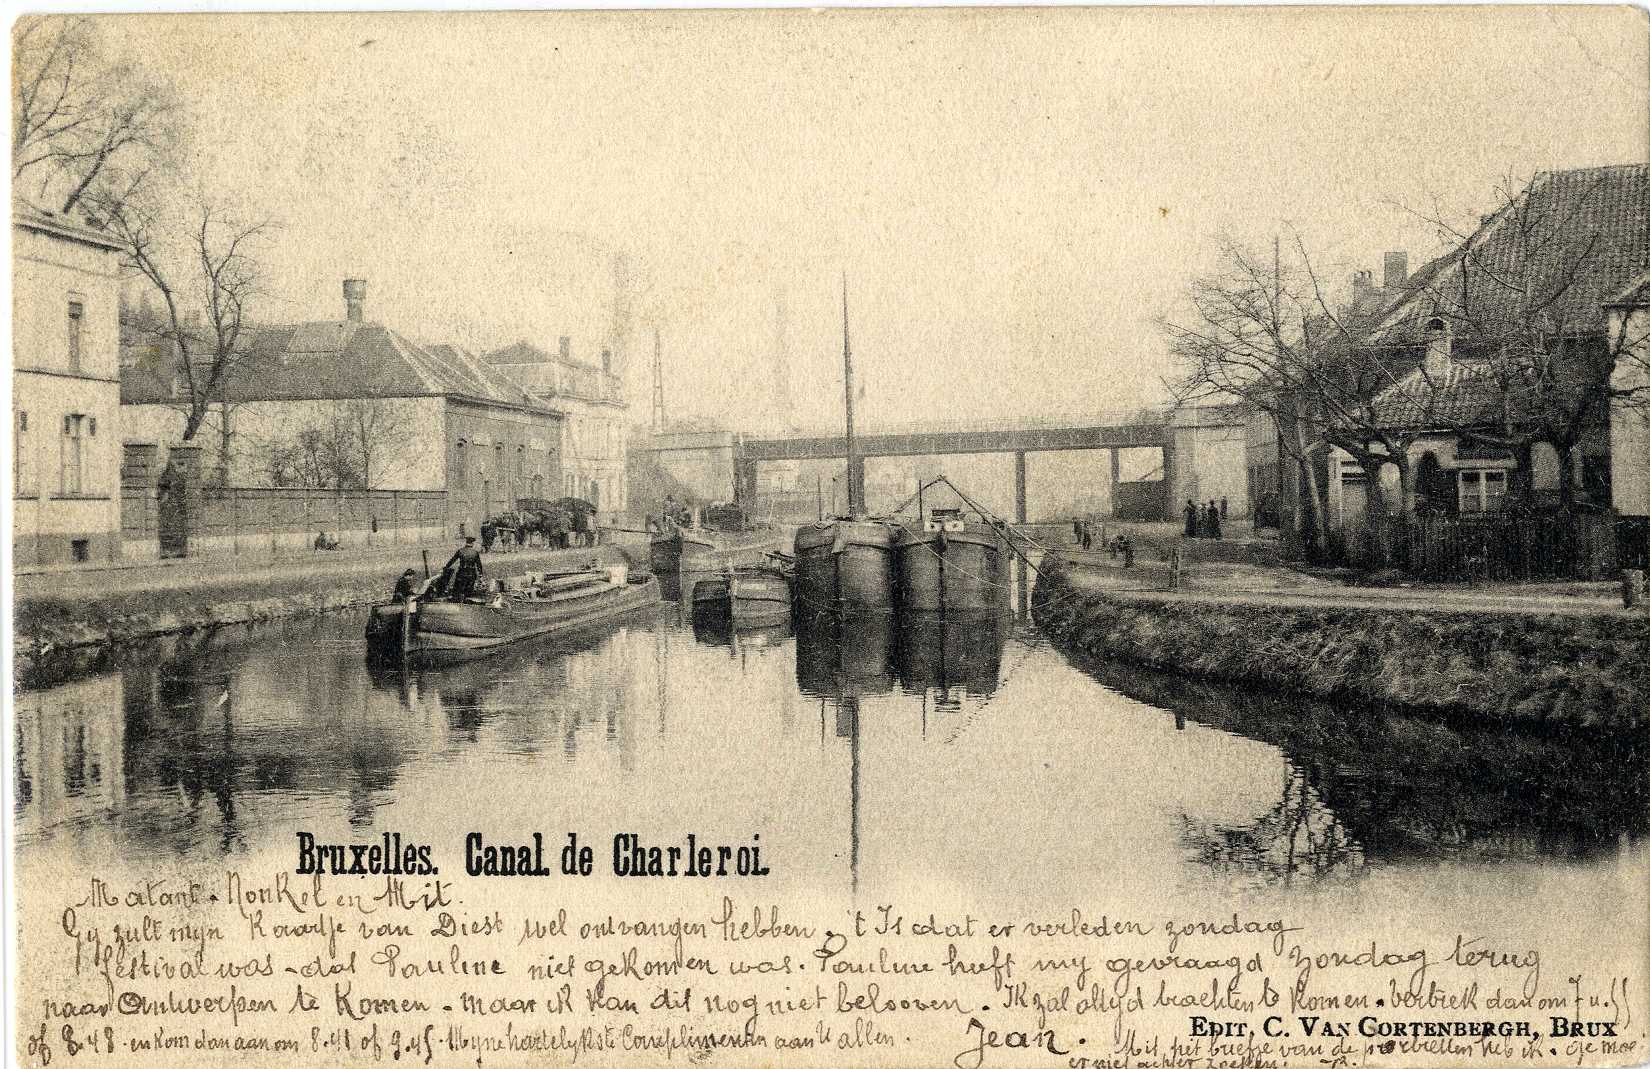 Bruxelles. Canal de Charleroi.
Matant. Nonkel en Mit.
Gy zult myn Kaartje van Diest wel ontvangen hebben. 't Is dat er verleden zondag
festival was - dat Pauline niet gekomen was. Pauline heeft my gevraagd zondag terug
naar Antwerpen te Komen. maar ik kan dit nog niet belooven. Ik zal altyd trachten te komen. Vertrek dan om 7 u.
of 8.48. en kom dan aan om 8.41 of 9.45. Myne hartelykste Complimenten aan U allen. Jean.
EDIT. C. VAN CORTENBERGH, BRUX
Mit het briefje van de heb ik. Ge moe
er niet achter zoeken.